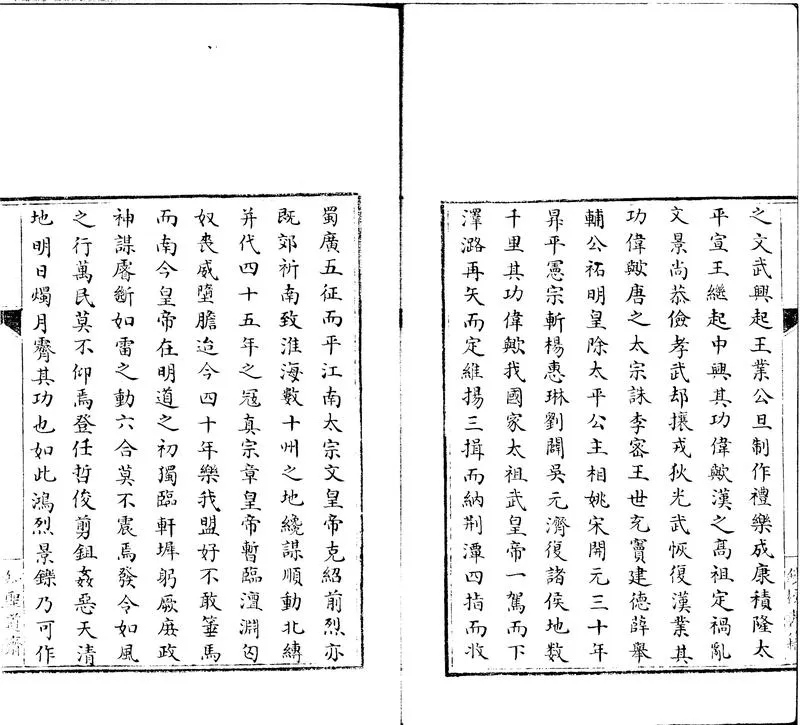 之文武興起王業公旦制作禮樂成康積隆太
平宣王繼起中興其功偉歟漢之高祖定禍亂
文景尚恭儉孝武却攘戎狄光武恢復漢業其
功偉歟唐之太宗誅李密王世充竇建德薛舉
輔公祏明皇除太平公主相姚宋開元三十年
昇平憲宗斬楊惠琳劉闢吳元濟復諸侯地數
千里其功偉歟我國家太祖武皇帝一駕而下
澤潞再矢而定維揚三揖而納荆潭四指而收
蜀廣五征而平江南太宗文皇帝克紹前烈亦
既郊祈南致淮海數十州之地纔謀順動北縛
并代四十五年之寇真宗章皇帝暫臨澶淵匈
奴喪威墮膽迨今四十年樂我盟好不敢箠馬
而南今皇帝在明道之初獨臨軒墀躬厥庶政
神謀睿斷如雷之動六合莫不震焉發令如風
之行萬民莫不仰焉登任哲俊剪鉏姦惡天清
地明日燭月霽其功也如此鴻烈景鑠乃可作